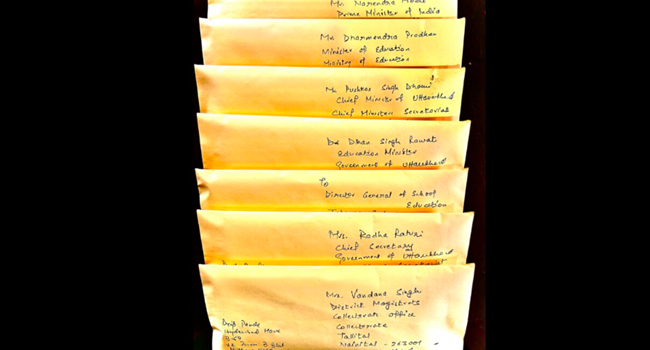 Mr. Narendra Modi
Prime Minister of India
Mr. Dharmendra Pradhan
Minister of Education
Ministry of Education
Mr. Pushkar Singh Dhami
Chief Minister of Uttarakhand
Chief Minister Secretariat
Dr Dhan Singh Rawat
Education Minister
Government of Uttarakhand
To
Director General of School
Education
Mrs. Radha Raturi
Chief Secretary
Government of Uttarakhand
Mrs. Vandana Singh
District Magistrate
Collectorate Office
Collectorate
Tallital
Nainital - 263001